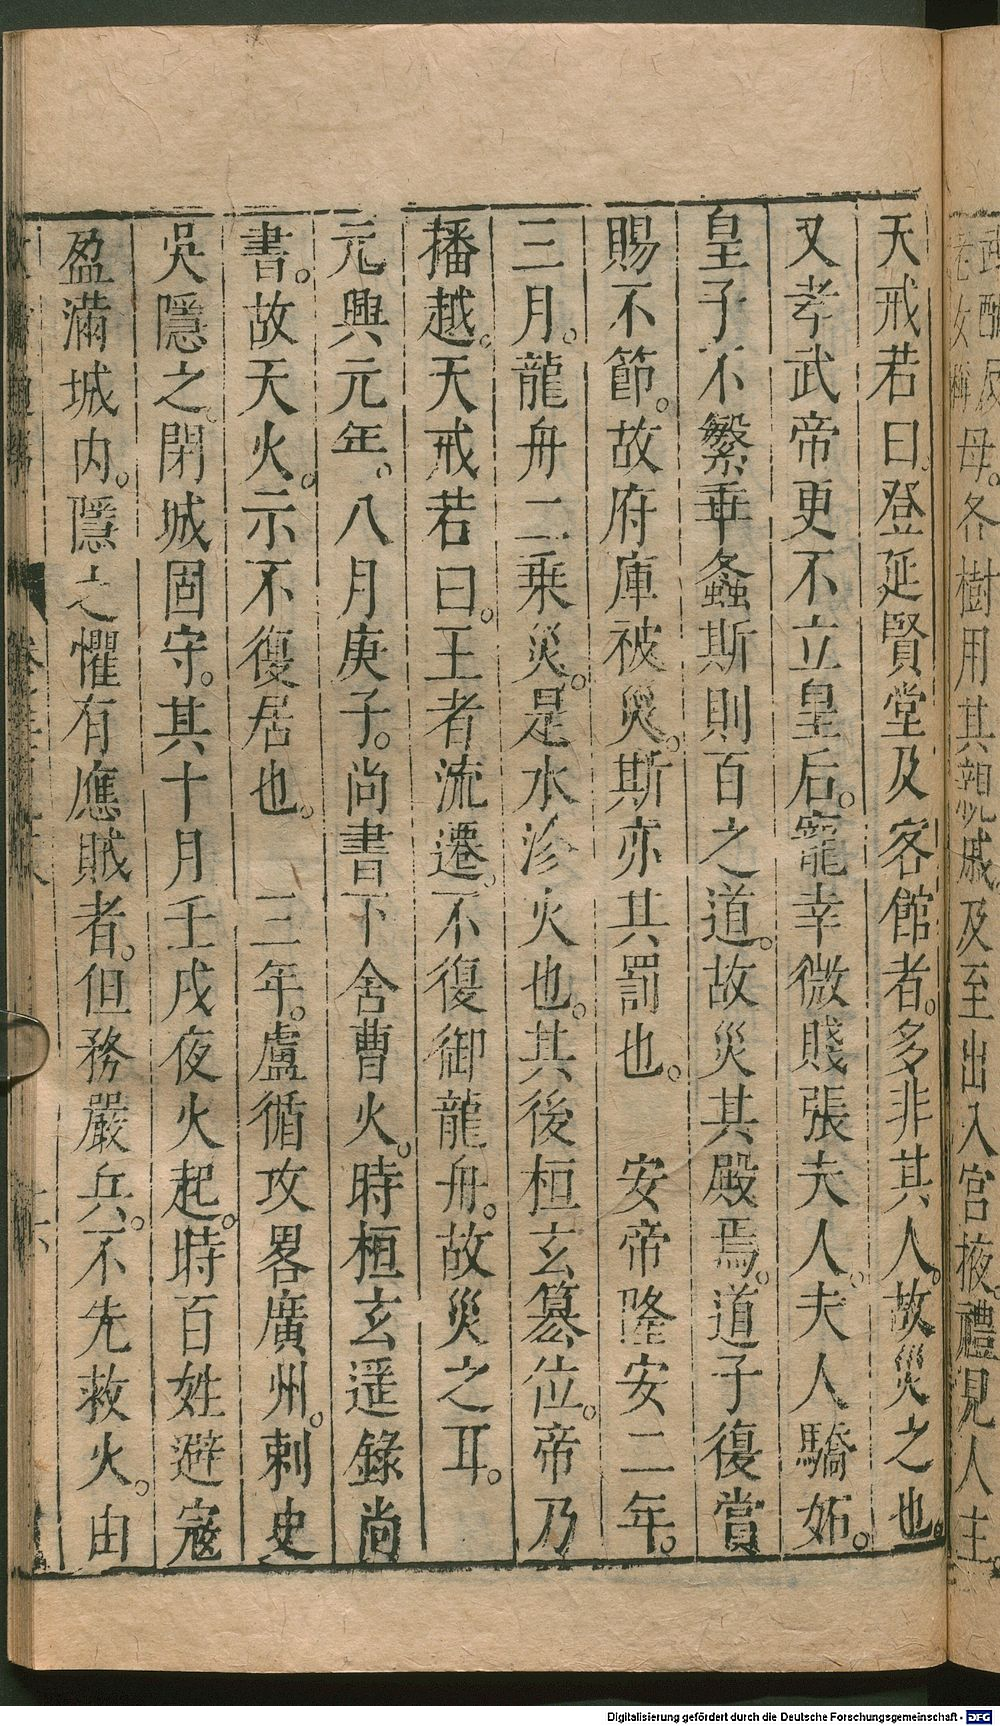 武酣反
老女稱母。各樹用其親戚。及至出入宮掖。禮見人主。
天戒若曰。登延賢堂及客館者。多非其人。故災之也。
又孝武帝更不立皇后。寵幸微賤張夫人。夫人驕妬。
皇子不繁。乖螽斯則百之道。故災其殿焉。道子復賞
賜不節。故府庫被災。斯亦其罰也。 安帝隆安二年。
三月。龍舟二乗災。是水沴火也。其後桓玄簒位。帝乃
播越。天戒若曰。王者流遷。不復御龍舟。故災之耳。
元興元年。八月庚子。尚書下舍曹火。時桓玄遥錄尚
書。故天火。示不復居也。 三年。盧循攻畧廣州。刺史
吳隱之。閉城固守。其十月壬戌夜火起。時百姓避寇
盈滿城内。隱之懼有應賊者。但務嚴兵。不先救火。由
Digitalisierung gefördert durch die Deutsche Forschungsgemeinschaft - DFG